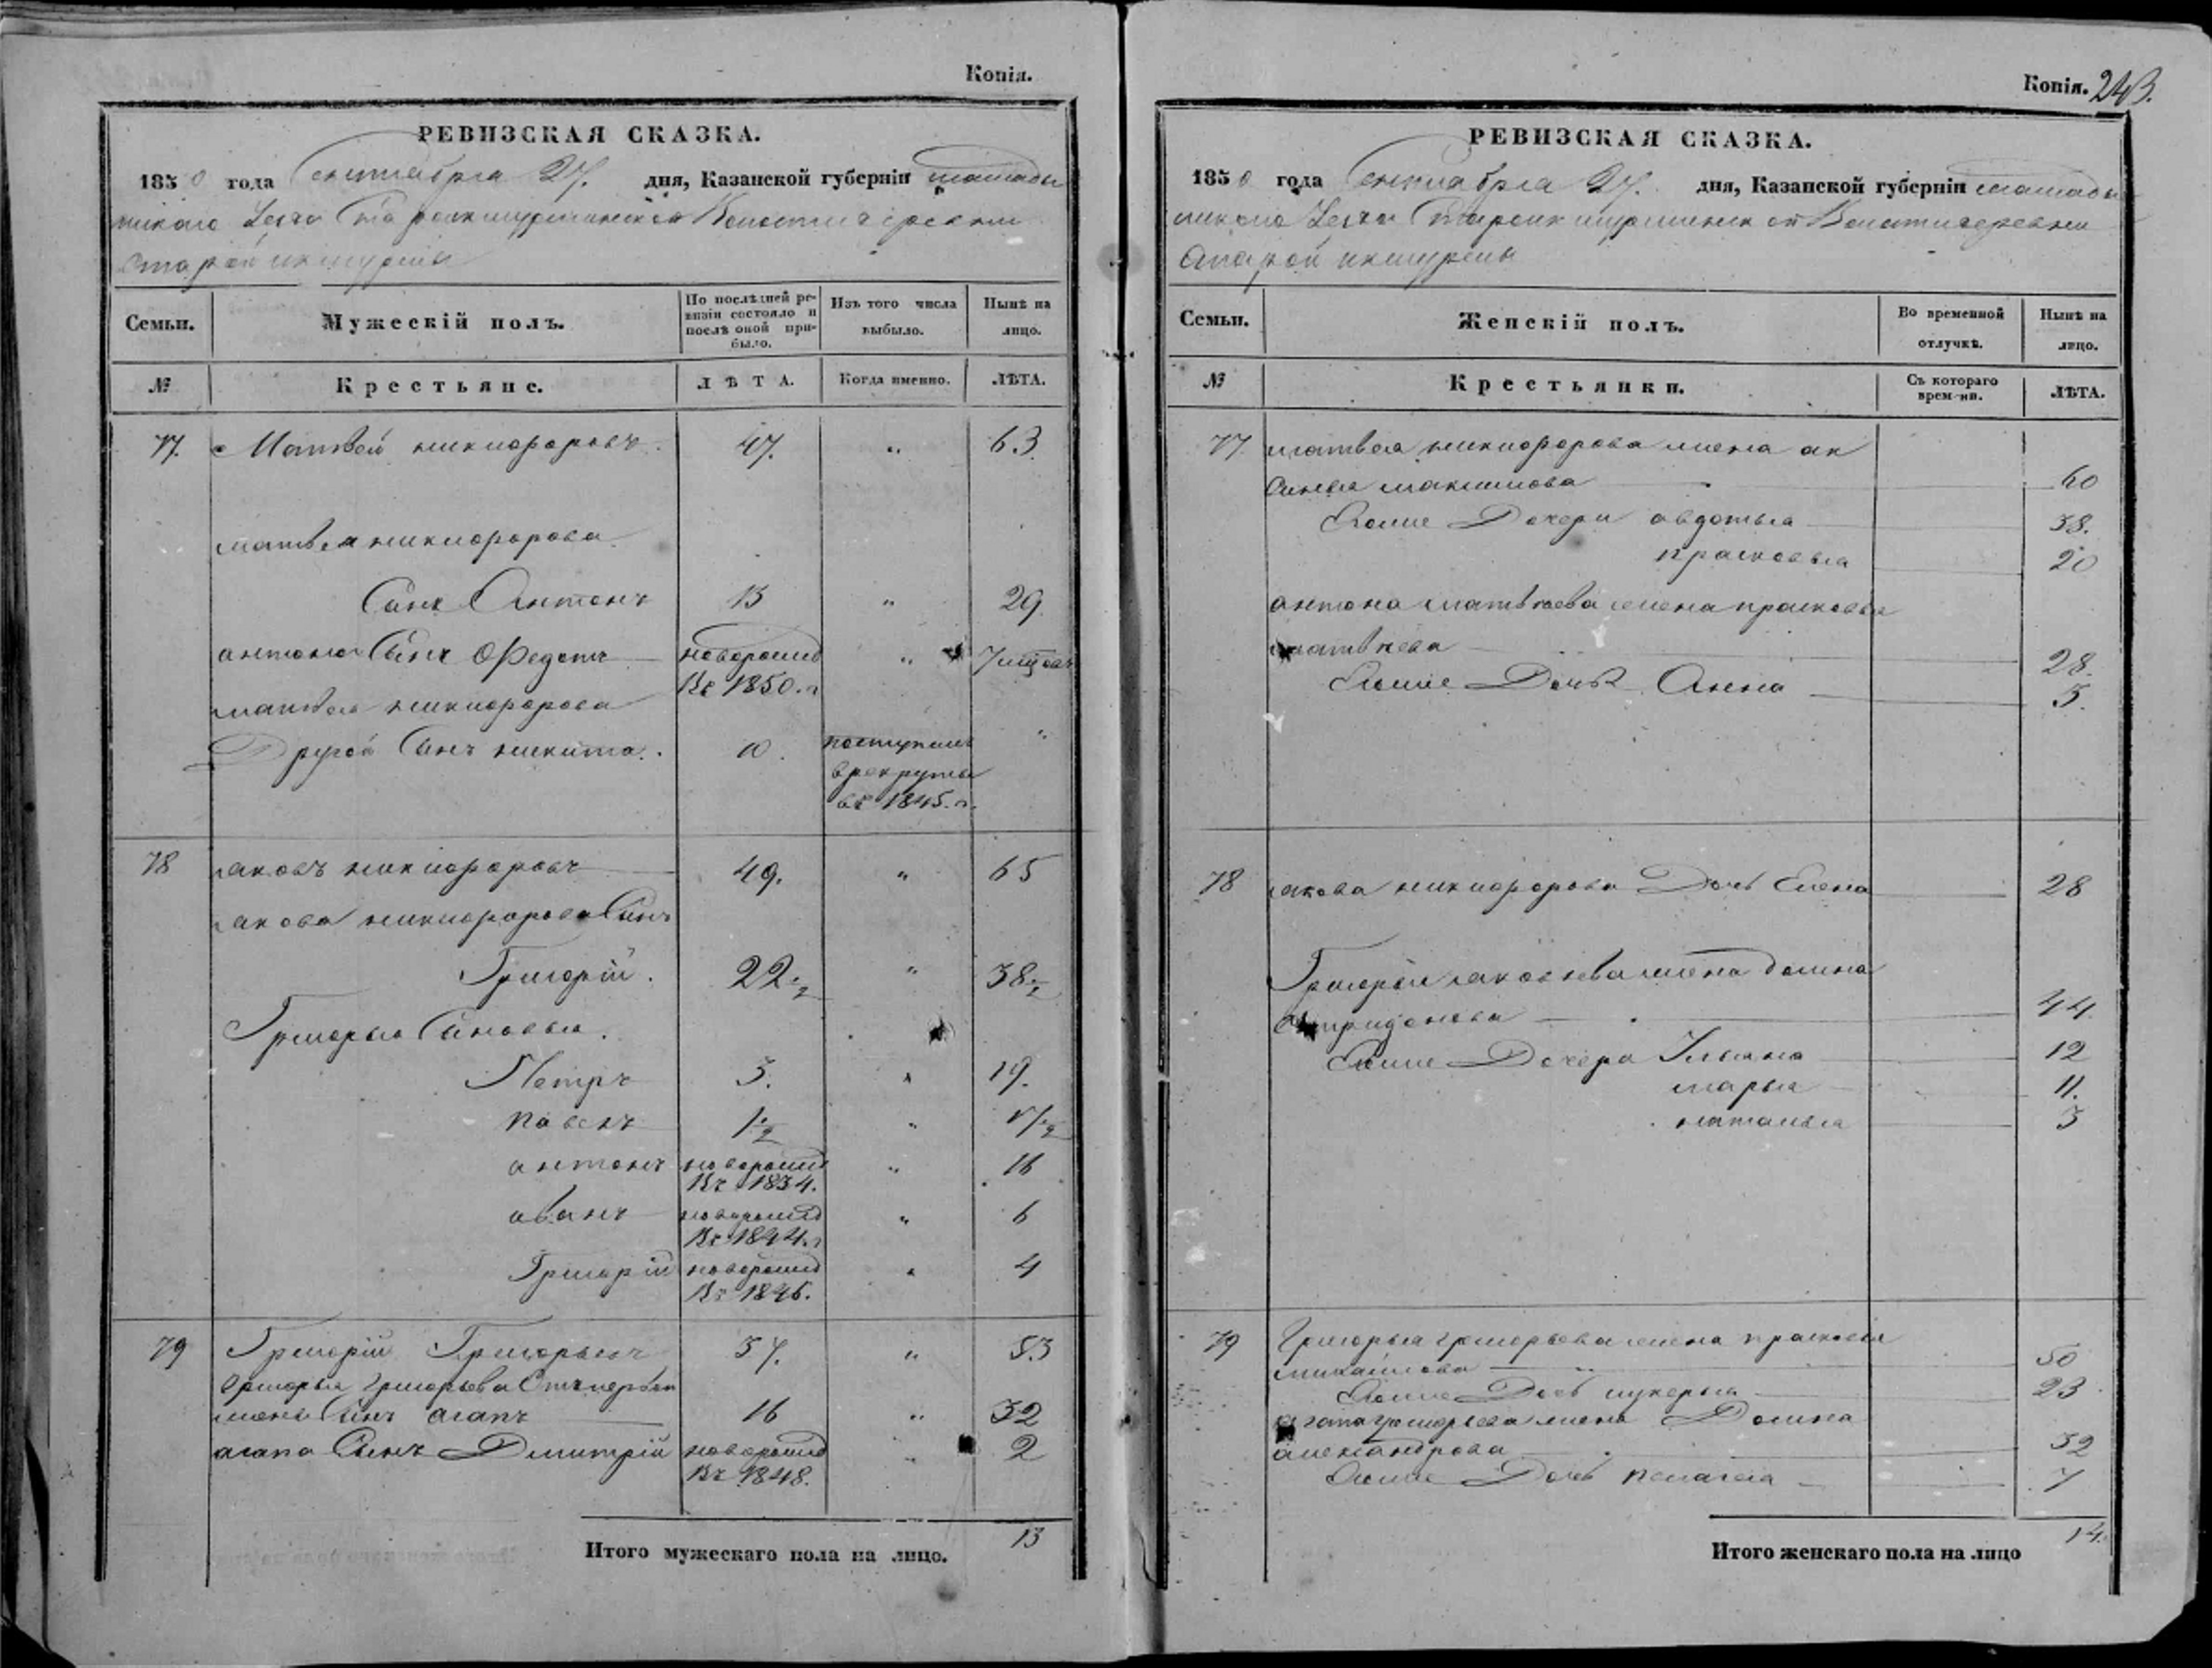 Копія.
РЕВИЗСКАЯ СКАЗКА.
1850 года Сентября 27. дня, Казанской губерніи
Волости деревни
Старой икшурмы
Семьи.
Мужескій полъ.
По послѣдней ре-
визіи состояло и
послѣ оной при-
было.
Изъ того числа
выбыло.
Нынѣ на
лицо.
№
Крестьяне.
ЛѢТА.
Когда именно.
ЛѢТА.
77. Матвей никифоровъ. 47. " 63
матвея никифорова
Сынъ Антонъ 13 " 29
антона Сынъ Федотъ новорожд "
въ 1850. г
матвея никифорова
Другой Сынъ никита. 10. поступилъ "
в рекруты
въ 1845. г.
78 яковъ никифоровъ 49. " 65
якова никифорова Сынъ
Григорій. 22 1/2 " 38 1/2
Григорья Сыновья.
Петръ 3. " 19.
павелъ 1 1/2 " 17 1/2
антонъ новорожд " 16
въ 1834.
иванъ новорожд " 6
въ 1844. г
Григорій новорожд " 4
въ 1846.
79 Григорій Григорьевъ 37. " 53
Григорья Григорьева Отъ первой
жены Сынъ агапъ 16 " 32
агапа Сынъ Дмитрій новорожд " 2
въ 1848.
13
Итого мужескаго пола на лицо.
Копія. 243.
РЕВИЗСКАЯ СКАЗКА.
1850 года Сентября 27. дня, Казанской губерніи
Волости деревни
Старой икшурмы
Семьи.
Женскій полъ.
Во временной
отлучкѣ.
Нынѣ на
лицо.
№
Крестьянки.
Съ котораго
времени.
ЛѢТА.
77 матвея никифорова жена ак
синья максимова 60
Ихже Дочери авдотья 38.
прасковья 20
антона матвѣева жена прасковья
матвѣева 28.
Ихже Дочь Анна 5.
78 якова никифорова Дочь Елена 28
Григорья яковлева жена домна
спиридонова 44
Ихже Дочери Ульяна 12
марья 11.
наталья 3
79 Григорья григорьева жена прасковья
михайлова 50
Ихже Дочь лукерья 23
агапа григорьева жена Домна
александрова 32
Ихже Дочь пелагея 7
14.
Итого женскаго пола на лицо